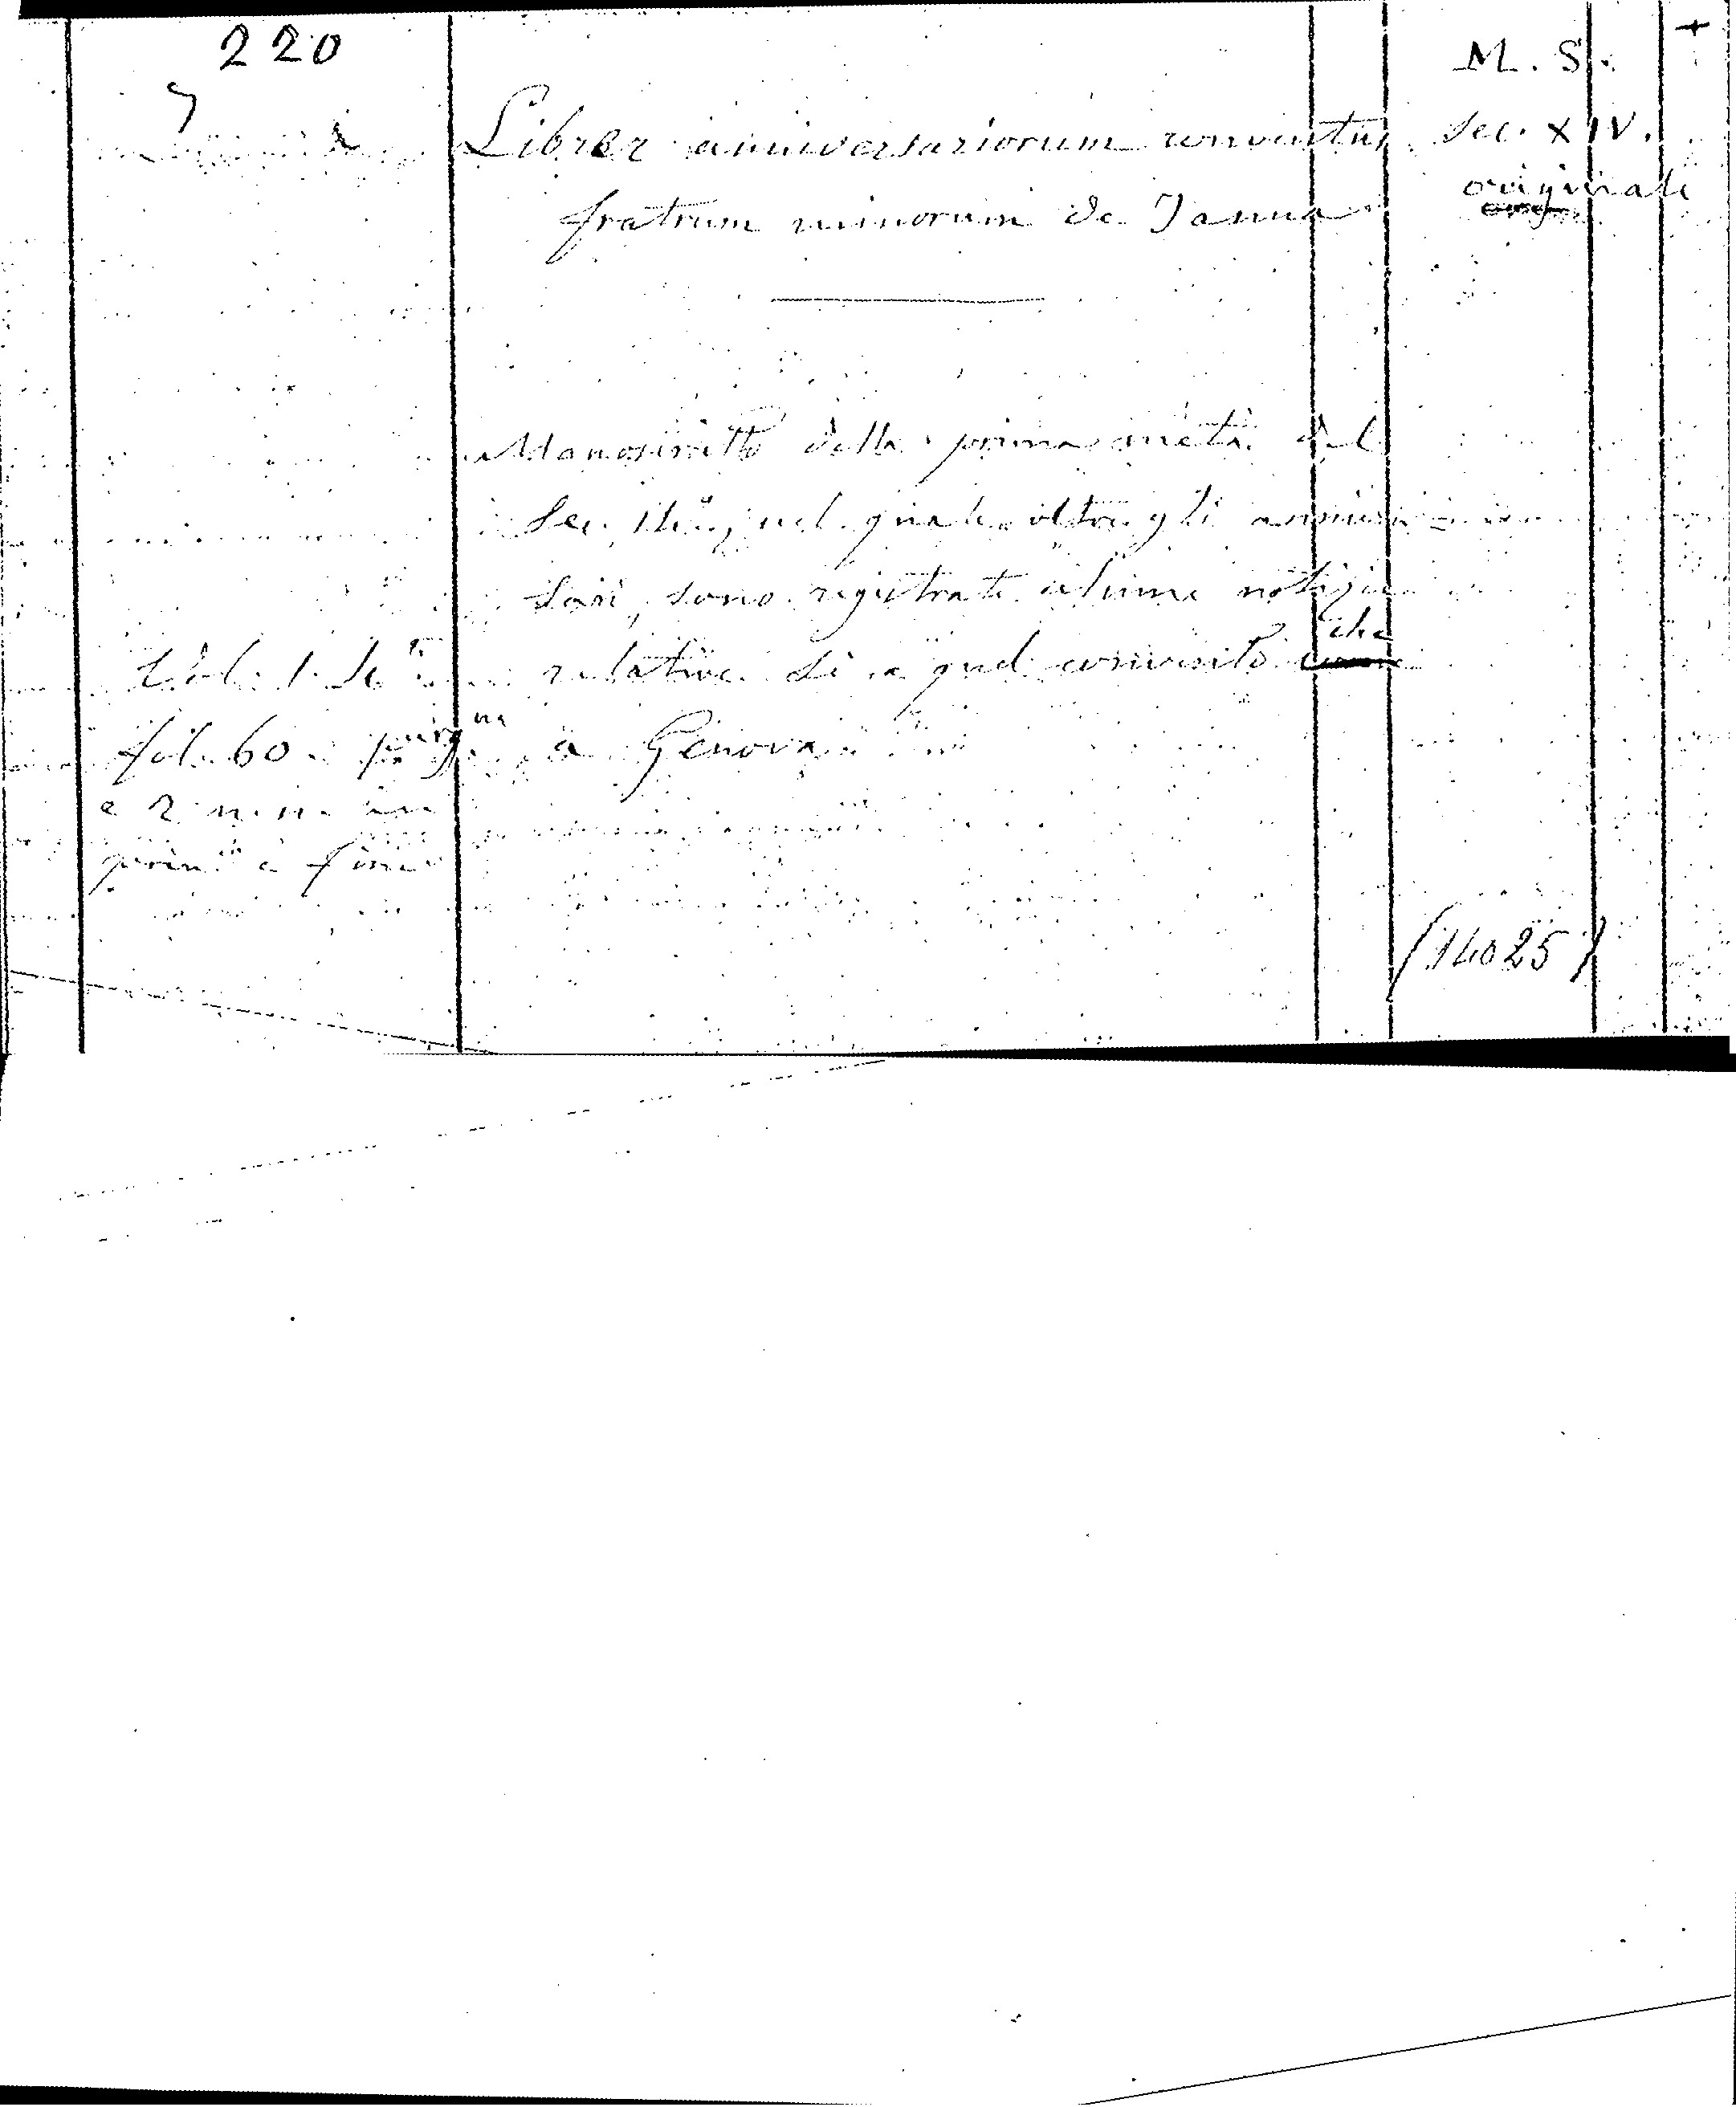 220
M. S.
Librer anniversariorum conventus
Sec. XIV.
fratrum minorum de Janua
originale
Manoscritto della prima metà del
Sec. nel quale oltre gli anniver
sari, sono registrate alcune notizie
relative di a quel convento che
fol. 60
a Genova
e 2 n. n. in
prin° e fine
(14025)